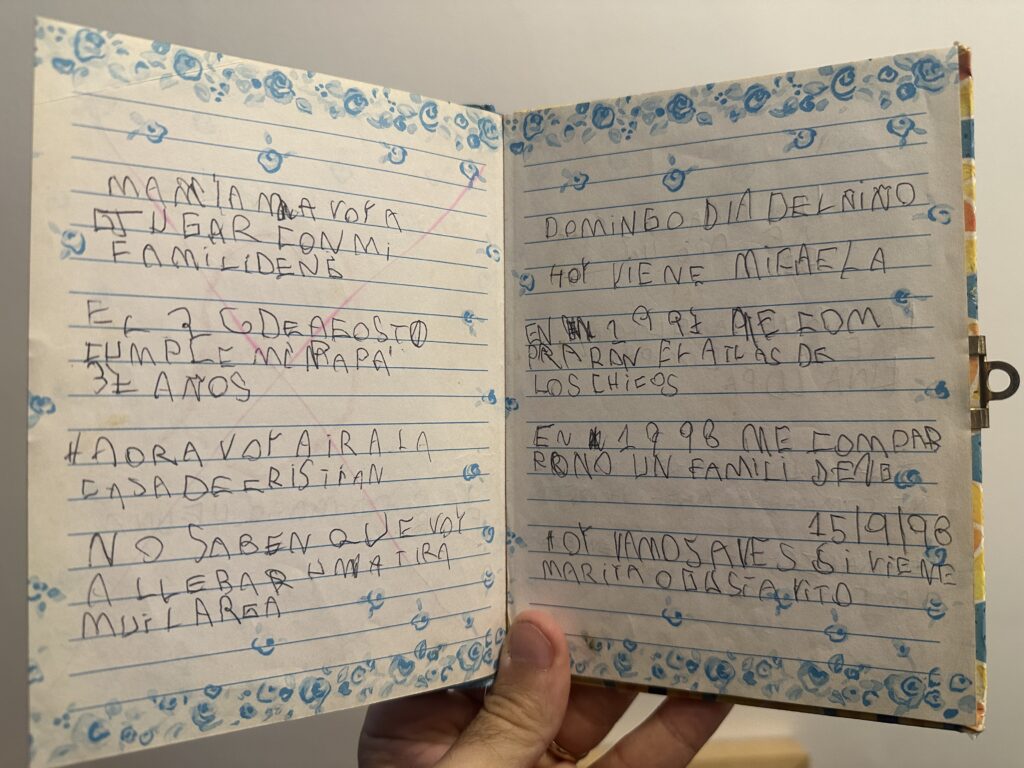 MAMÍA MNA VOY A
JUGAR CON MI
FAMILIDENE
EL 26 DE AGOSTO
CUMPLE MI PAPÁ
37 AÑOS
HAORA VOY A IR A LA
CASA DE CRISTIAN
NO SABEN QUE VOY
A LLEBAR UNA TIRA
MUI LARGA
DOMINGO DIA DEL NIÑO
HOY VIENE MICAELA
EN 1997 ME COM
PRARAN EL ATLAS DE
LOS CHICOS
EN 1998 ME COMPRAR
RONO UN FAMILI DENE
15/9/98
HOY VAMOS A VES SI VIENE
MARITA O